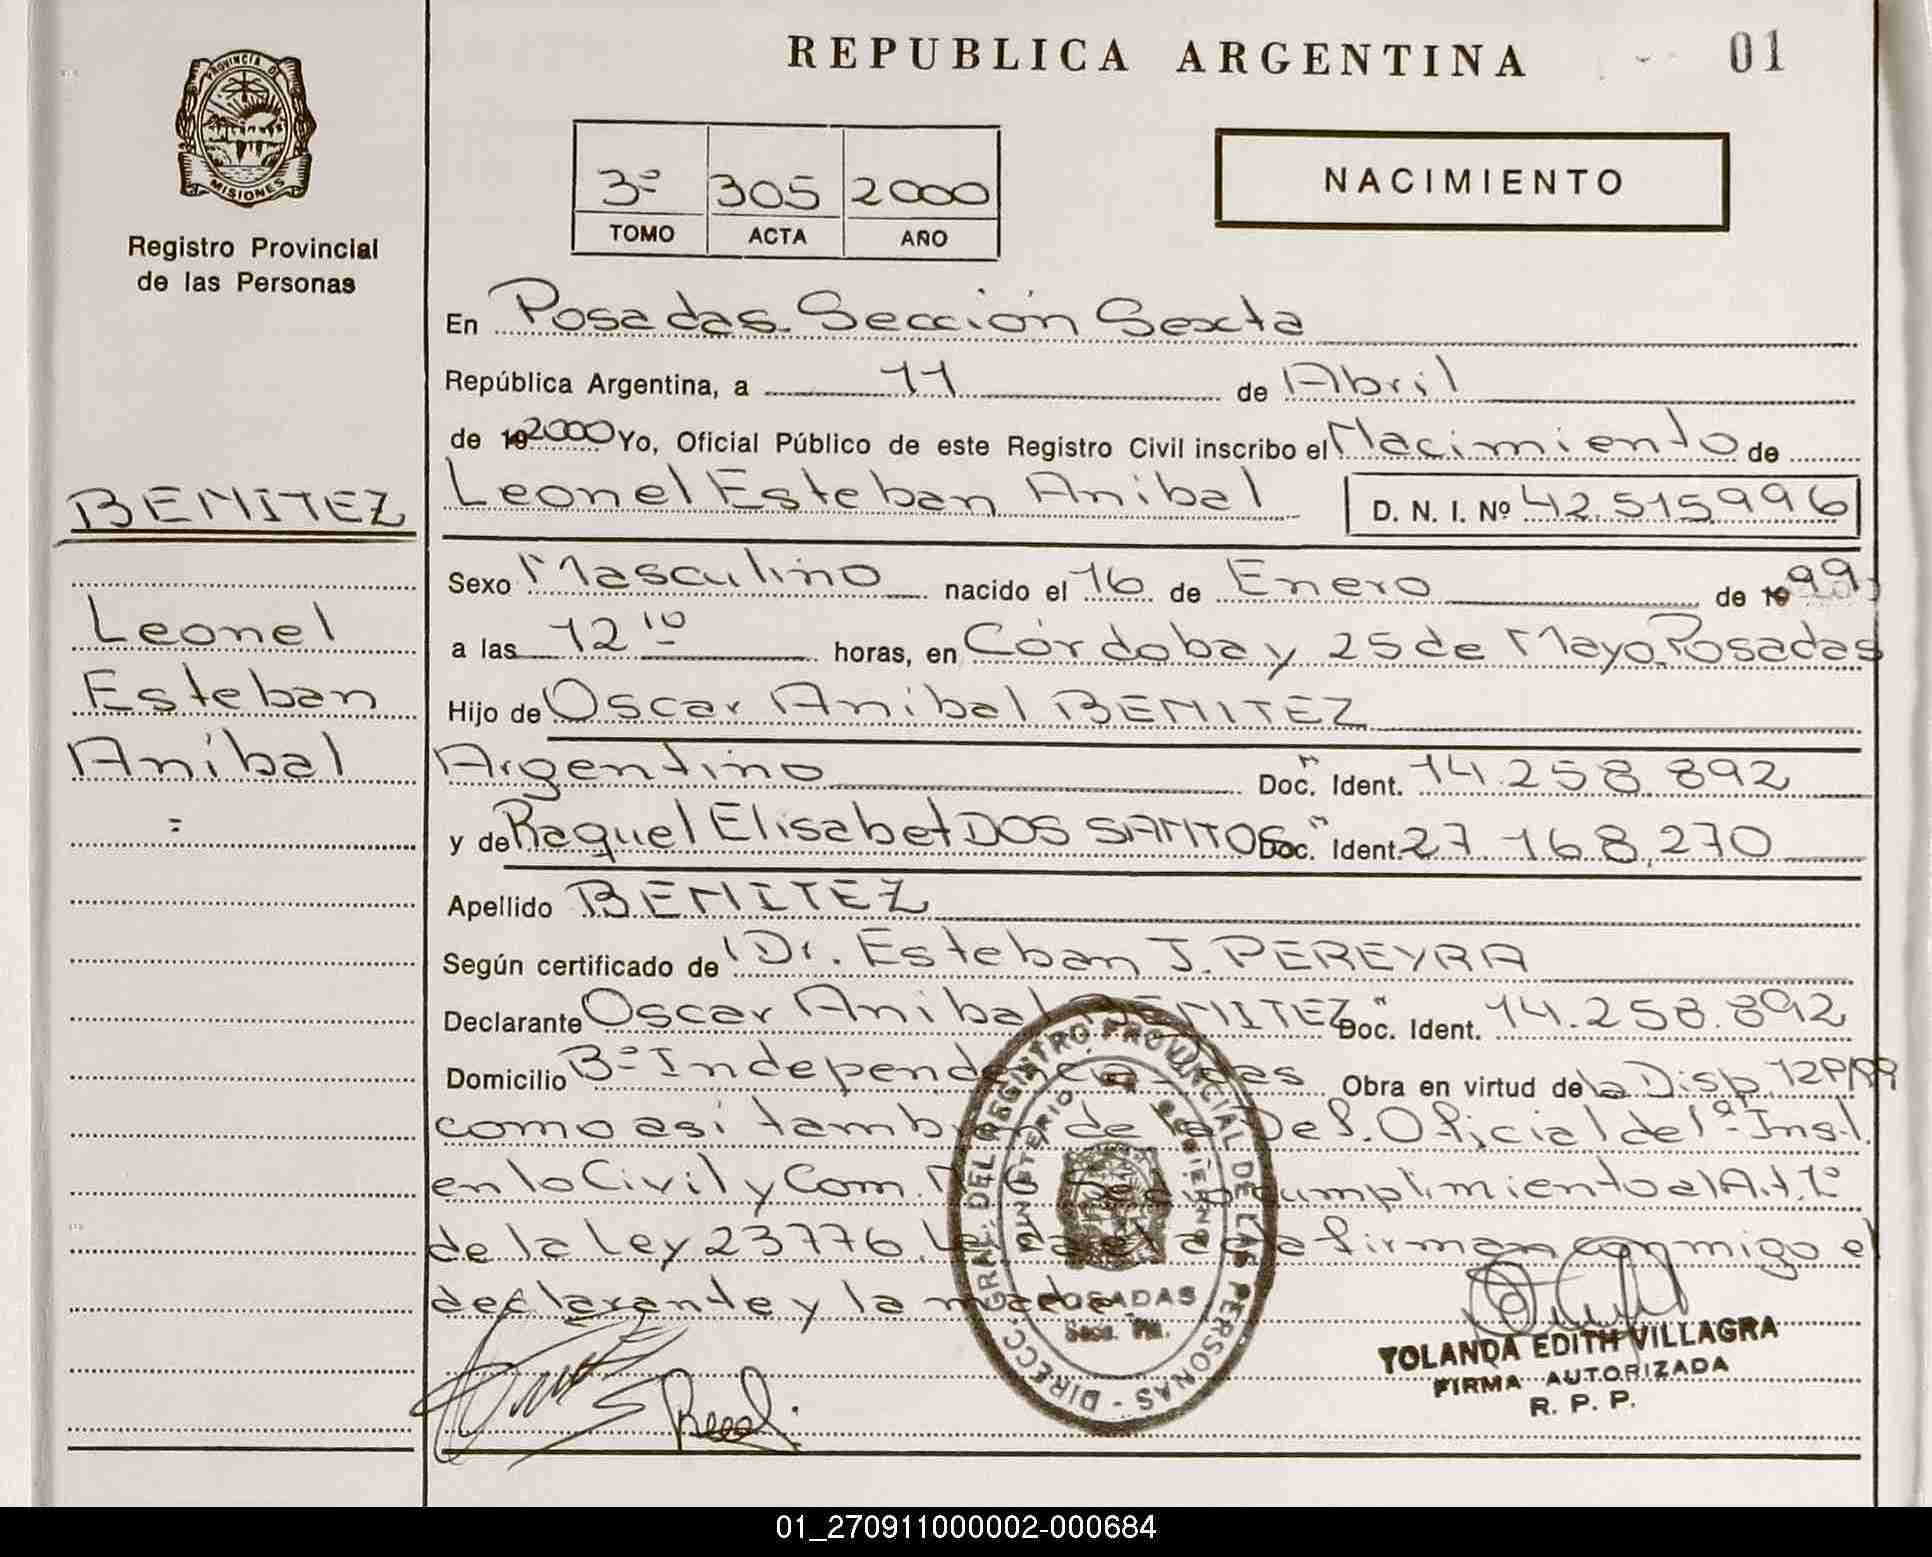 REPUBLICA ARGENTINA
01
PROVINCIA DE
MISIONES
Registro Provincial
de las Personas
3º 305 2000
TOMO ACTA AÑO
NACIMIENTO
En Posadas Sección Sexta
República Argentina, a 11 de Abril
de 19 2000 Yo, Oficial Público de este Registro Civil inscribo el Nacimiento de
Leonel Esteban Anibal D. N. I. Nº 42.515996
BENITEZ
Leonel
Esteban
Aníbal
=
Sexo Masculino nacido el 16 de Enero de 1999
a las 12 10 horas, en Córdoba y 25 de Mayo. Posadas
Hijo de Oscar Anibal BENITEZ
Argentino Doc. Ident. 14.258.892
y de Raquel Elisabet DOS SANTOS Doc. Ident. 27.168.270
Apellido BENITEZ
Según certificado de Dr. Esteban J. PEREYRA
Declarante Oscar Anibal BENITEZ Doc. Ident. 14.258.892
Domicilio Bº Independencia Obra en virtud de la Disp.
como asi también de la Def. Oficial de 1ª Inst.
en lo Civil y Com. cumplimiento al Art. 1º
de la Ley 23776. firman conmigo el
declarante y la madre
DIRECC. GRAL. DEL REGISTRO PROVINCIAL DE LAS PERSONAS
MINISTERIO DE GOBIERNO
POSADAS
YOLANDA EDITH VILLAGRA
FIRMA AUTORIZADA
R. P. P.
01_270911000002-000684